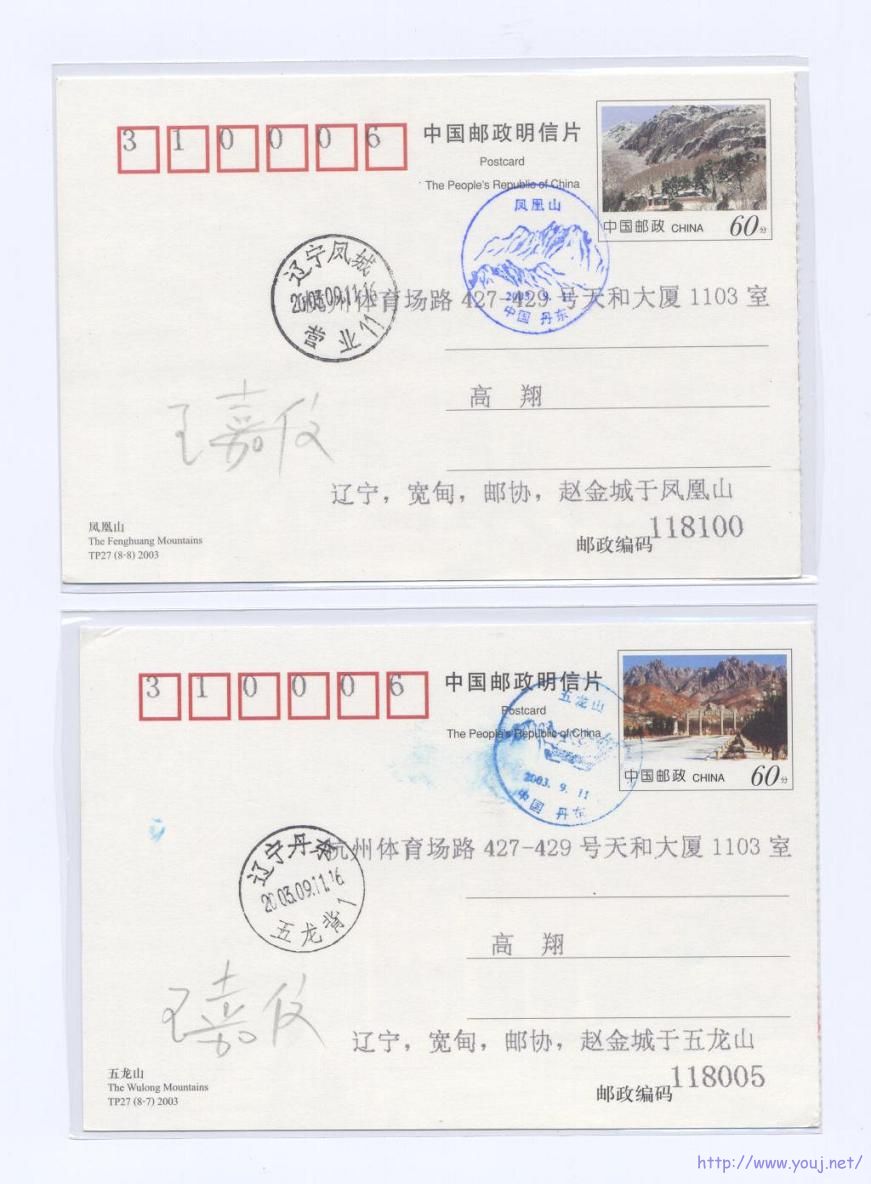 310006
中国邮政明信片
Postcard
The People's Republic of China
中国邮政 CHINA 60分
凤凰山
2003. 9. 11
中国 丹东
辽宁凤城
2003.09.11.16
营业11
杭州体育场路 427-429 号天和大厦 1103 室
高 翔
王嘉
辽宁，宽甸，邮协，赵金城于凤凰山
凤凰山
The Fenghuang Mountains
TP27 (8-8) 2003
邮政编码 118100
310006
中国邮政明信片
Postcard
The People's Republic of China
中国邮政 CHINA 60分
五龙山
2003. 9. 11
中国 丹东
杭州体育场路 427-429 号天和大厦 1103 室
辽宁丹东
2003.09.11.16
五龙背1
高 翔
王嘉
辽宁，宽甸，邮协，赵金城于五龙山
五龙山
The Wulong Mountains
TP27 (8-7) 2003
邮政编码 118005
http://www.youj.net/